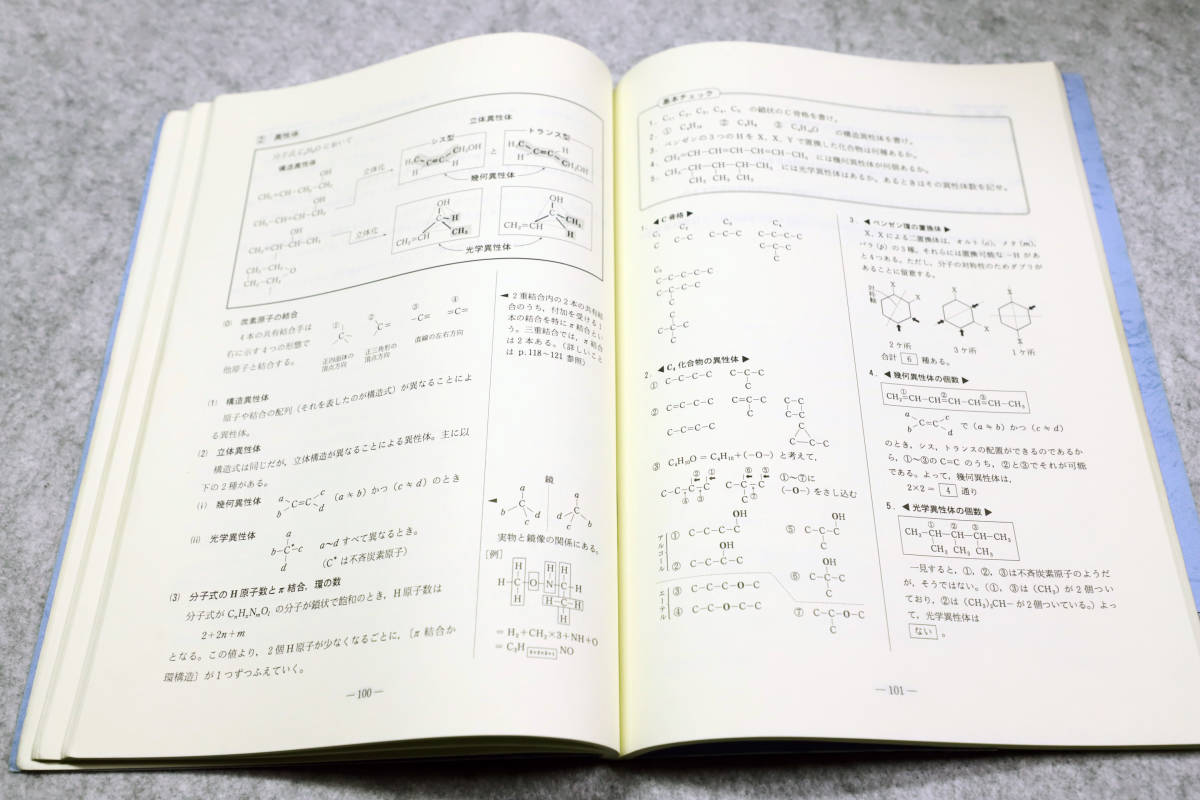 ② 異性体
分子式C₄H₈Oにおいて
構造異性体
立体異性体
シス型
と
トランス型
幾何異性体
立体化
立体化
光学異性体
OH
CH₂=CH-CH₂-CH₂
OH
CH₃-CH=CH-CH₂
OH
CH₂=CH-CH-CH₃
CH₂-CH₂
CH₂-CH₂
O
⓪ 炭素原子の結合
4本の共有結合手は
右に示す4つの形態で
他原子と結合する。
① ② ③ ④
正四面体の
頂点方向
正三角形の
頂点方向
直線の左右方向
(1) 構造異性体
原子や結合の配列(それを表したのが構造式)が異なることによ
る異性体。
(2) 立体異性体
構造式は同じだが，立体構造が異なることによる異性体。主に以
下の2種がある。
(i) 幾何異性体 (a≒b)かつ(c≒d)のとき
(ii) 光学異性体 a～dすべて異なるとき。
(C*は不斉炭素原子)
(3) 分子式のH原子数とπ結合，環の数
分子式がCₙHₓNₘOₗの分子が鎖状で飽和のとき，H原子数は
2+2n+m
となる。この値より，2個H原子が少なくなるごとに，〔π結合か
環構造〕が1つずつふえていく。
◀2重結合内の2本の共有結
合のうち，付加を受ける1
本の結合を特にπ結合とい
う。三重結合では，π結合
は2本ある。(詳しいこと
は p.118～121 参照)
鏡
実物と鏡像の関係にある。
[例]
=H₃+CH₂×3+NH+O
=C₃H NO
—100—
基本チェック
1. C₁, C₂, C₃, C₄, C₅ の鎖状のC骨格を書け。
2. ① C₄H₁₀ ② C₄H₈ ③ C₄H₁₀O の構造異性体を書け。
3. ベンゼンの3つのHをX，X，Yで置換した化合物は何種あるか。
4. CH₂=CH-CH=CH-CH=CH-CH₃ には幾何異性体が何個あるか。
5. CH₃-CH-CH-CH-CH₃ には光学異性体はあるか。あるときはその異性体数を記せ。
CH₃ CH₃ CH₃
1. ◀C骨格▶
C₁ C₂ C₃ C₄
C C-C C-C-C C-C-C-C
C-C-C
C
C₅
C-C-C-C-C
C-C-C-C
C
C
C-C-C
C
2. ◀C₄化合物の異性体▶
① C-C-C-C C-C-C
C
② C=C-C-C C=C-C C-C
C C-C
C-C=C-C C
C-C-C
③ C₄H₁₀O=C₄H₁₀+(-O-)と考えて，
①～⑦に
(-O-)をさし込む
アルコール
OH
① C-C-C-C
OH
② C-C-C-C
エーテル
③ C-C-C-O-C
④ C-C-O-C-C
OH
⑤ C-C-C
C
OH
⑥ C-C-C
C
⑦ C-C-O-C
C
3. ◀ベンゼン環の置換体▶
X，Xによる二置換体は，オルト(o)，メタ(m)，
パラ(p)の3種。それらには置換可能な-Hがあ
と4つある。ただし，分子の対称性のためダブりが
あることに留意する。
対称軸
2ケ所 3ケ所 1ケ所
合計 6 種ある。
4. ◀幾何異性体の個数▶
① ② ③
CH₂=CH-CH=CH-CH=CH-CH₃
で(a≒b)かつ(c≒d)
のとき，シス，トランスの配置ができるのであるか
ら，①～③のC=Cのうち，②と③でそれが可能
である。よって，幾何異性体は，
2×2= 4 通り
5. ◀光学異性体の個数▶
① ② ③
CH₃-CH-CH-CH-CH₃
CH₃ CH₃ CH₃
一見すると，①，②，③は不斉炭素原子のようだ
が，そうではない。(①，③は(CH₃)が2個つい
ており，②は(CH₃)₂CH-が2個ついている。)よっ
て，光学異性体は
ない 。
—101—